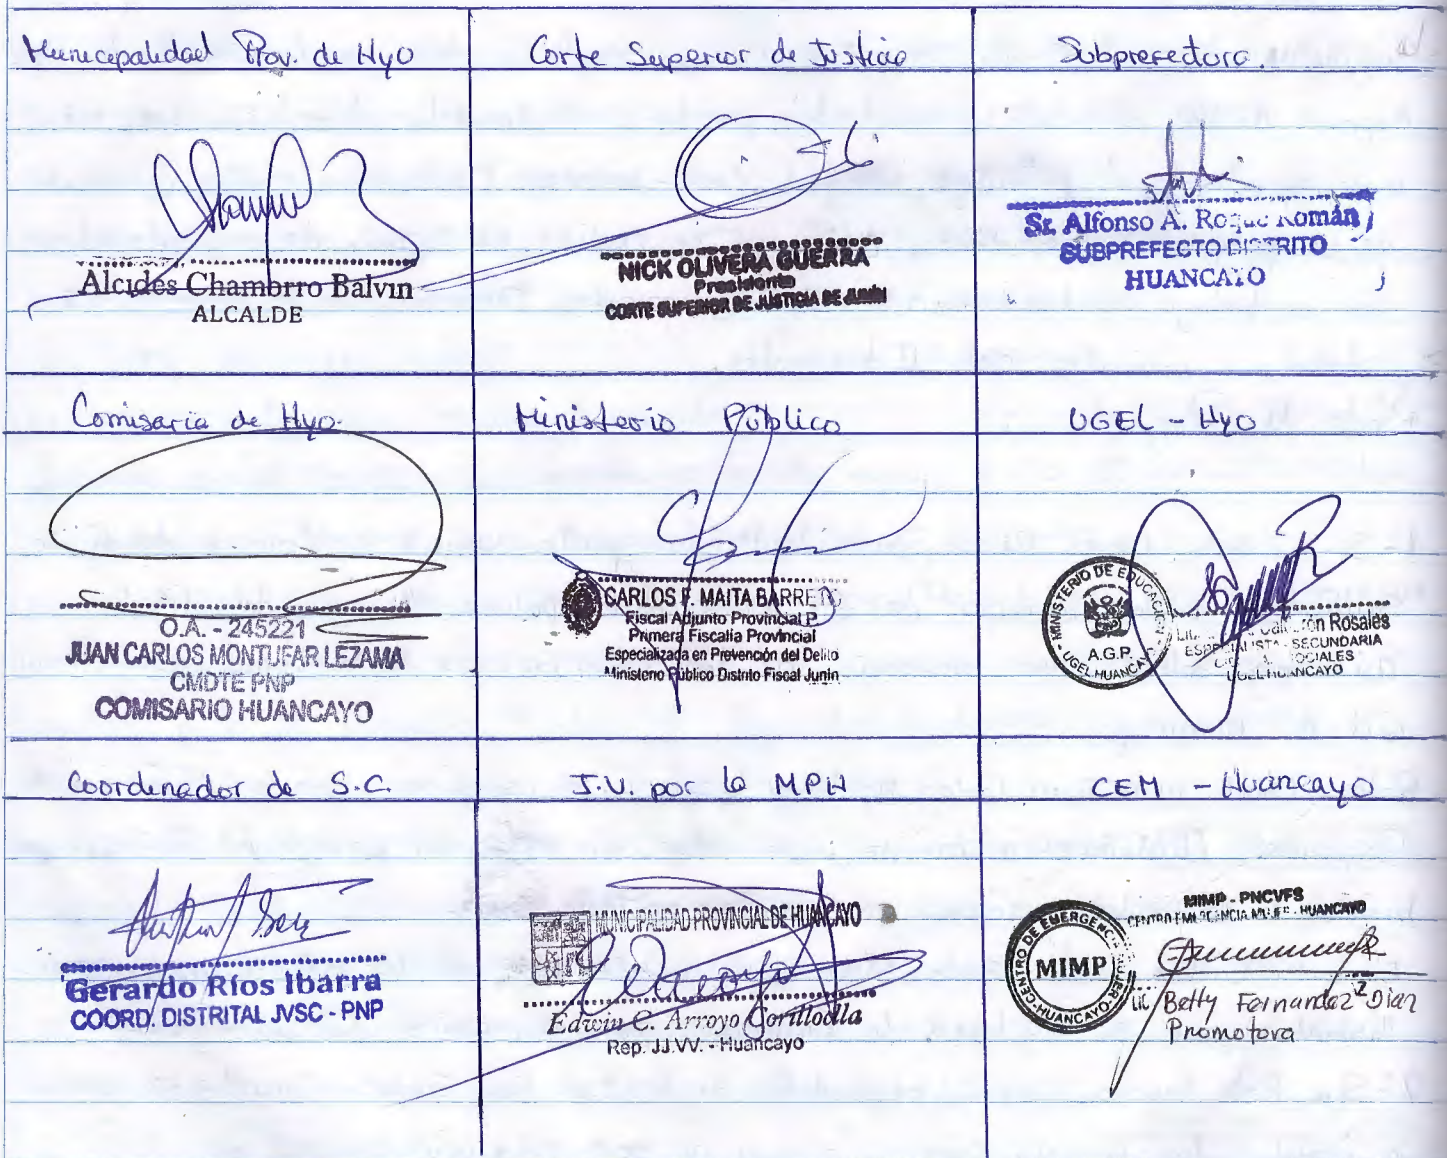 Municipalidad Prov. de Hyo
Alcides Chamorro Balvin
ALCALDE
Corte Superior de Justicia
NICK OLIVERA GUERRA
Presidente
CORTE SUPERIOR DE JUSTICIA DE JUNÍN
Subprefectura.
Sr. Alfonso A. Roque Román
SUBPREFECTO DISTRITO
HUANCAYO
Comisaria de Hyo.
O.A. - 245221
JUAN CARLOS MONTUFAR LEZAMA
CMDTE PNP
COMISARIO HUANCAYO
Ministerio Público
CARLOS F. MAITA BARRETO
Fiscal Adjunto Provincial P
Primera Fiscalía Provincial
Especializada en Prevención del Delito
Ministerio Público Distrito Fiscal Junín
UGEL - Hyo
MINISTERIO DE EDUCACIÓN
A.G.P.
UGEL HUANCAYO
Rosales
ESPECIALISTA - SECUNDARIA
SOCIALES
UGEL HUANCAYO
Coordinador de S.C.
Gerardo Ríos Ibarra
COORD. DISTRITAL JVSC - PNP
J.V. por la MPH
MUNICIPALIDAD PROVINCIAL DE HUANCAYO
Edwin C. Arroyo Corilloclla
Rep. JJ.VV. - Huancayo
CEM - Huancayo
MIMP - PNCVFS
CENTRO EMERGENCIA MUJER - HUANCAYO
CENTRO DE EMERGENCIA MUJER - HUANCAYO
MIMP
Lic Betty Fernandez Diaz
Promotora